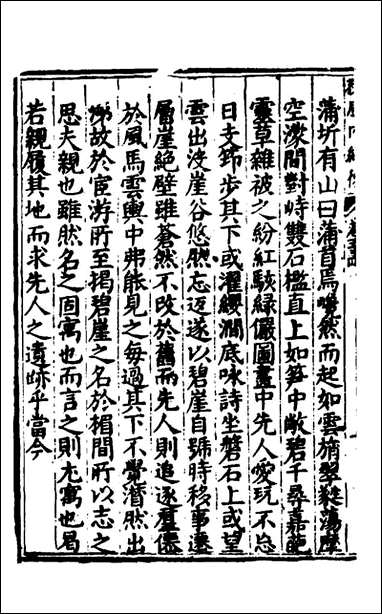 蒲圻有山曰蒲首焉嶐然而起如雲旓翠蕤蕩摩
空濛間對峙雙石檻直上如笋中敞碧千尋嘉葩
靈草雜被之紛紅駭緑儼圖畫中先人愛玩不忘
日支筇步其下或濯纓澗底咏詩坐磐石上或望
雲出没崖谷悠然忘返遂以碧崖自號時移事遷
層崖絶壁雖蒼然不改於舊而先人則追逐羣僊
於風馬雲輿中弗能見之每過其下不覺潸然出
涕故於宦游所至揭碧崖之名於楣間所以志之
思夫親也雖然名之固寓也而言之則尤寓也曷
若親履其地而求先人之遺跡乎當今